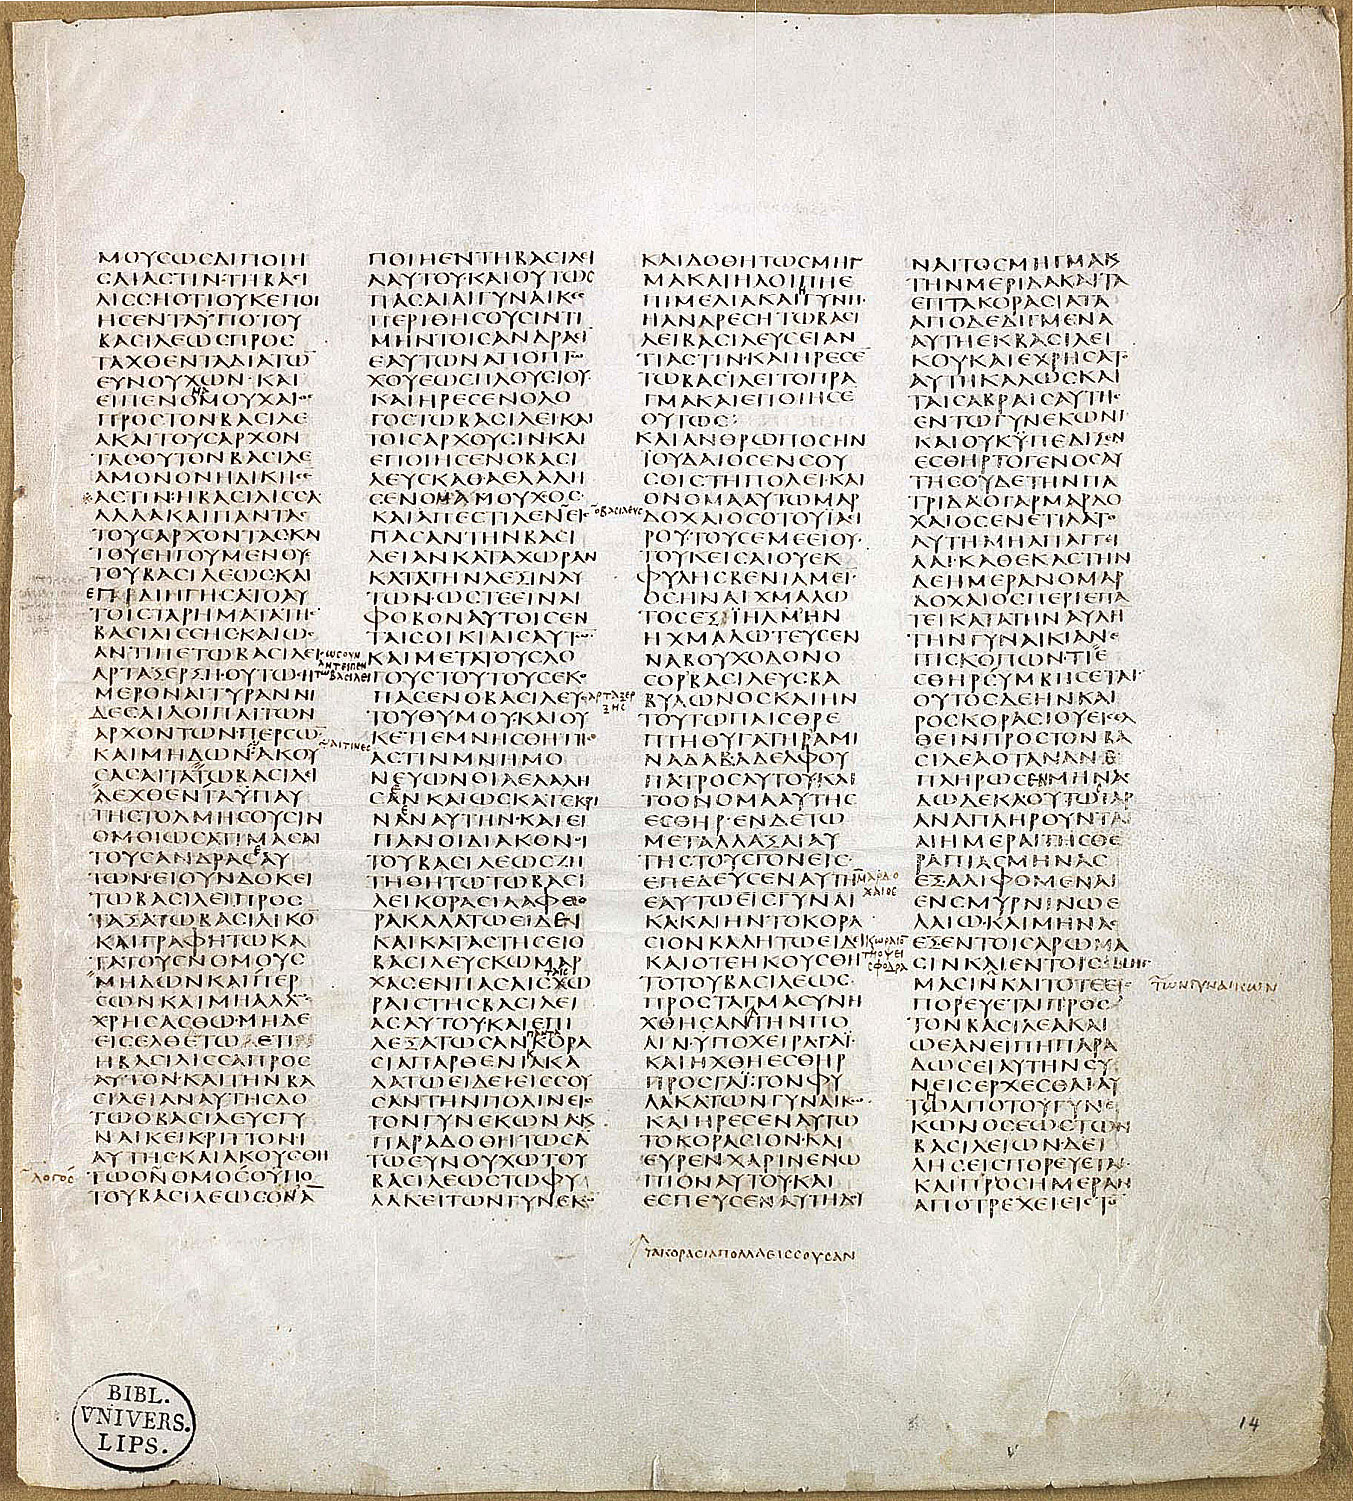 ΜΟΥΣΩΣΔΙΠΟΙΗ
ΣΑΙΑΣΤΙΝ·ΤΗΒΑΣΙ
ΛΙΣΣΗΟΤΙΟΥΚΕΠΟΙ
ΗΣΕΝΤΑΫΠΟΤΟΥ
ΒΑΣΙΛΕΩΣΠΡΟΣ
ΤΑΧΘΕΝΤΑΔΙΑΤΩ
ΕΥΝΟΥΧΩΝ·ΚΑΙ
ΕΙΠΕΝΟΜΟΥΧΑΙΟΣ
ΠΡΟΣΤΟΝΒΑΣΙΛΕ
ΑΚΑΙΤΟΥΣΑΡΧΟΝ
ΤΑΣΟΥΤΟΝΒΑΣΙΛΕ
ΑΜΟΝΟΝΗΔΙΚΗΣΕ
ΑΣΤΙΝ·ΗΒΑΣΙΛΙΣΣΑ
ΑΛΛΑΚΑΙΠΑΝΤΑΣ
ΤΟΥΣΑΡΧΟΝΤΑΣΚΑΙ
ΤΟΥΣΗΓΟΥΜΕΝΟΥΣ
ΤΟΥΒΑΣΙΛΕΩΣΚΑΙ
ΤΟΙΣΤΑΡΗΜΑΤΑΤΗΣ
ΒΑΣΙΛΙΣΣΗΣΚΑΙΩΣ
ΑΝΤΙΠΕΤΩΒΑΣΙΛΕΙ
ΜΕΡΟΝΑΙΤΥΡΑΝΝΙ
ΔΕΣΑΙΛΟΙΠΑΙΤΩΝ
ΑΡΧΟΝΤΩΝΠΕΡΣΩ
ΚΑΙΜΗΔΩΝΑΚΟΥ
ΣΑΣΑΙΤΑΤΩΒΑΣΙΛΕΙ
ΛΕΧΘΕΝΤΑΫΠΑΥ
ΤΗΣΤΟΛΜΗΣΟΥΣΙΝ
ΟΜΟΙΩΣΑΤΙΜΑΣΑΙ
ΤΟΥΣΑΝΔΡΑΣΑΥ
ΤΩΝ·ΕΙΟΥΝΔΟΚΕΙ
ΤΩΒΑΣΙΛΕΙΠΡΟΣ
ΤΑΣΑΤΩΒΑΣΙΛΙΚΟ
ΚΑΙΓΡΑΦΗΤΩΚΑ
ΤΑΤΟΥΣΝΟΜΟΥΣ
ΜΗΔΩΝΚΑΙΠΕΡ
ΣΩΝΚΑΙΜΗΑΛΛΩΣ
ΧΡΗΣΑΣΘΩ·ΜΗΔΕ
ΕΙΣΕΛΘΕΤΩΕΤΙ
ΗΒΑΣΙΛΙΣΣΑΠΡΟΣ
ΑΥΤΟΝ·ΚΑΙΤΗΝΒΑ
ΣΙΛΕΙΑΝΑΥΤΗΣΔΟ
ΤΩΟΒΑΣΙΛΕΥΣΓΥ
ΝΑΙΚΕΙΚΡΙΤΤΟΝΙ
ΑΥΤΗΣ·ΚΑΙΑΚΟΥΣΘΗ
ΤΩΟΝΟΜΟΣΟΥΠΟ
ΤΟΥΒΑΣΙΛΕΩΣΟΝΑ
ΠΟΙΗΕΝΤΗΒΑΣΙΛΕΙ
ΑΑΥΤΟΥ·ΚΑΙΟΥΤΩΣ
ΠΑΣΑΙΑΙΓΥΝΑΙΚΕΣ
ΠΕΡΙΘΗΣΟΥΣΙΝΤΙ
ΜΗΝΤΟΙΣΑΝΔΡΑΣΙ
ΕΑΥΤΩΝΑΠΟΠΤΩ
ΧΟΥΕΩΣΠΛΟΥΣΙΟΥ·
ΚΑΙΗΡΕΣΕΝΟΛΟ
ΓΟΣΤΩΒΑΣΙΛΕΙΚΑΙ
ΤΟΙΣΑΡΧΟΥΣΙΝΚΑΙ
ΕΠΟΙΗΣΕΝΟΒΑΣΙ
ΛΕΥΣΚΑΘΑΕΛΑΛΗ
ΣΕΝΟΜΑΜΟΥΧΟΣ·
ΚΑΙΑΠΕΣΤΙΛΕΝΕΙΣ
ΠΑΣΑΝΤΗΝΒΑΣΙ
ΛΕΙΑΝΚΑΤΑΧΩΡΑΝ
ΚΑΤΑΤΗΝΛΕΞΙΝΑΥ
ΤΩΝ·ΩΣΤΕΕΙΝΑΙ
ΦΟΒΟΝΑΥΤΟΙΣΕΝ
ΤΑΙΣΟΙΚΙΑΙΣΑΥΤΩΝ
ΚΑΙΜΕΤΑΤΟΥΣΛΟ
ΓΟΥΣΤΟΥΤΟΥΣΕΚΟ
ΠΑΣΕΝΟΒΑΣΙΛΕΥΣ
ΤΟΥΘΥΜΟΥ·ΚΑΙΟΥ
ΚΕΤΙΕΜΝΗΣΘΗΤΗΣ
ΑΣΤΙΝΜΝΗΜΟ
ΝΕΥΩΝΟΙΑΕΛΑΛΗ
ΣΑΝΚΑΙΩΣΚΑΤΕΚΡΙ
ΝΑΝΑΥΤΗΝ·ΚΑΙΕΙ
ΠΑΝΟΙΔΙΑΚΟΝΟΙ
ΤΟΥΒΑΣΙΛΕΩΣΖΗ
ΤΗΘΗΤΩΤΩΒΑΣΙ
ΛΕΙΚΟΡΑΣΙΑΑΦΘΟ
ΡΑΚΑΛΑΤΩΕΙΔΕΙ
ΚΑΙΚΑΤΑΣΤΗΣΕΙΟ
ΒΑΣΙΛΕΥΣΚΩΜΑΡ
ΧΑΣΕΝΠΑΣΑΙΣΧΩ
ΡΑΙΣΤΗΣΒΑΣΙΛΕΙ
ΑΣΑΥΤΟΥ·ΚΑΙΕΠΙ
ΛΕΞΑΤΩΣΑΝΚΟΡΑ
ΣΙΑΠΑΡΘΕΝΙΑΚΑ
ΛΑΤΩΕΙΔΕΙ·ΕΙΣΣΟΥ
ΣΑΝΤΗΝΠΟΛΙΝΕΙΣ
ΤΟΝΓΥΝΕΚΩΝΑΚ
ΠΑΡΑΔΟΘΗΤΩΣΑ
ΤΩΕΥΝΟΥΧΩΤΟΥ
ΒΑΣΙΛΕΩΣΤΩΦΥ
ΛΑΚΕΙΤΩΝΓΥΝΕΚΩ
ΚΑΙΔΟΘΗΤΩΣΜΗΓ
ΜΑΚΑΙΗΛΟΙΠΗΕ
ΠΙΜΕΛΙΑΚΑΙΓΥΝΗ·
ΗΑΝΑΡΕΣΗΤΩΒΑΣΙ
ΛΕΙΒΑΣΙΛΕΥΣΕΙΑΝ
ΤΙΑΣΤΙΝ·ΚΑΙΗΡΕΣΕ
ΤΩΒΑΣΙΛΕΙΤΟΠΡΑ
ΓΜΑΚΑΙΕΠΟΙΗΣΕ
ΟΥΤΩΣ:
ΚΑΙΑΝΘΡΩΠΟΣΗΝ
ΙΟΥΔΑΙΟΣΕΝΣΟΥ
ΣΟΙΣΤΗΠΟΛΕΙ·ΚΑΙ
ΟΝΟΜΑΑΥΤΩΜΑΡ
ΔΟΧΑΙΟΣΟΤΟΥΙΑΕΙ
ΡΟΥ·ΤΟΥΣΕΜΕΕΙΟΥ·
ΤΟΥΚΕΙΣΑΙΟΥΕΚ
ΦΥΛΗΣΒΕΝΙΑΜΕΙ·
ΟΣΗΝΑΙΧΜΑΛΩ
ΤΟΣΕΞΙΗΛΜΗΝ
ΗΧΜΑΛΩΤΕΥΣΕΝ
ΝΑΒΟΥΧΟΔΟΝΟ
ΣΟΡΒΑΣΙΛΕΥΣΒΑ
ΒΥΛΩΝΟΣΚΑΙΗΝ
ΤΟΥΤΩΠΑΙΣΘΡΕ
ΠΤΗΘΥΓΑΤΗΡΑΜΙ
ΝΑΔΑΒΑΔΕΛΦΟΥ
ΠΑΤΡΟΣΑΥΤΟΥ·ΚΑΙ
ΤΟΟΝΟΜΑΑΥΤΗΣ
ΕΣΘΗΡ·ΕΝΔΕΤΩ
ΜΕΤΑΛΛΑΞΑΙΑΥ
ΤΗΣΤΟΥΣΓΟΝΕΙΣ·
ΕΠΕΔΕΥΣΕΝΑΥΤΗ
ΕΑΥΤΩΕΙΣΓΥΝΑΙ
ΚΑΚΑΙΗΝΤΟΚΟΡΑ
ΣΙΟΝΚΑΛΗΤΩΕΙΔΕΙ
ΚΑΙΟΤΕΗΚΟΥΣΘΗ
ΤΟΤΟΥΒΑΣΙΛΕΩΣ·
ΠΡΟΣΤΑΓΜΑΣΥΝΗ
ΧΘΗΣΑΝΤΗΝΠΟ
ΛΙΝ·ΥΠΟΧΕΙΡΑΓΑΪ·
ΚΑΙΗΧΘΗΕΣΘΗΡ
ΠΡΟΣΓΑΪ:ΤΟΝΦΥ
ΛΑΚΑΤΩΝΓΥΝΑΙΚΩ
ΚΑΙΗΡΕΣΕΝΑΥΤΩ
ΤΟΚΟΡΑΣΙΟΝ·ΚΑΙ
ΕΥΡΕΝΧΑΡΙΝΕΝΩ
ΠΙΟΝΑΥΤΟΥΚΑΙ
ΕΣΠΕΥΣΕΝΑΥΤΗΔΟΥ
ΝΑΙΤΟΣΜΗΓΜΑΚΑΙ
ΤΗΝΜΕΡΙΔΑΚΑΙΤΑ
ΕΠΤΑΚΟΡΑΣΙΑΤΑ
ΑΠΟΔΕΔΙΓΜΕΝΑ
ΑΥΤΗΕΚΒΑΣΙΛΕΙ
ΚΟΥΚΑΙΕΧΡΗΣΑΤΟ
ΑΥΤΗΚΑΛΩΣΚΑΙ
ΤΑΙΣΑΒΡΑΙΣΑΥΤΗΣ
ΕΝΤΩΓΥΝΕΚΩΝΙ
ΚΑΙΟΥΚΫΠΕΔΙΞΕΝ
ΕΣΘΗΡΤΟΓΕΝΟΣΑΥ
ΤΗΣΟΥΔΕΤΗΝΠΑ
ΤΡΙΔΑΟΓΑΡΜΑΡΔΟ
ΧΑΙΟΣΕΝΕΤΙΛΑΤΟ
ΑΥΤΗΜΗΑΠΑΓΓΕΙ
ΛΑΙ·ΚΑΘΕΚΑΣΤΗΝ
ΔΕΗΜΕΡΑΝΟΜΑΡ
ΔΟΧΑΙΟΣΠΕΡΙΕΠΑ
ΤΕΙΚΑΤΑΤΗΝΑΥΛΗ
ΤΗΝΓΥΝΑΙΚΙΑΝΕ
ΠΙΣΚΟΠΩΝ·ΤΙΕ
ΣΘΗΡΣΥΜΒΗΣΕΤΑΙ·
ΟΥΤΟΣΔΕΗΝΚΑΙ
ΡΟΣΚΟΡΑΣΙΟΥΕΙΣΕΛ
ΘΕΙΝΠΡΟΣΤΟΝΒΑ
ΣΙΛΕΑΟΤΑΝΑΝ
ΠΛΗΡΩΣΕΝΜΗΝΑΣ
ΔΩΔΕΚΑΟΥΤΩΓΑΡ
ΑΝΑΠΛΗΡΟΥΝΤΑΙ
ΑΙΗΜΕΡΑΙΤΗΣΘΕ
ΡΑΠΙΑΣΜΗΝΑΣ
ΕΞΑΛΙΦΟΜΕΝΑΙ
ΕΝΣΜΥΡΝΙΝΩΕ
ΛΑΙΩ·ΚΑΙΜΗΝΑΣ
ΕΞΕΝΤΟΙΣΑΡΩΜΑ
ΣΙΝΚΑΙΕΝΤΟΙΣ
ΜΑΣΙΝΚΑΙΤΟΤΕΕΙΣ
ΠΟΡΕΥΕΤΑΙΠΡΟΣ
ΤΟΝΒΑΣΙΛΕΑΚΑΙ
ΩΕΑΝΕΙΠΗΠΑΡΑ
ΔΩΣΕΙΑΥΤΗΝΣΥ
ΝΕΙΣΕΡΧΕΣΘΑΙΑΥ
ΤΩΑΠΟΤΟΥΓΥΝΕ
ΚΩΝΟΣΕΩΣΤΩΝ
ΒΑΣΙΛΕΙΩΝ·ΔΕΙ
ΛΗΣΕΙΣΠΟΡΕΥΕΤΑΙ·
ΚΑΙΠΡΟΣΗΜΕΡΑΝ
ΑΠΟΤΡΕΧΕΙΕΙΣΤΟ
ΟΒΑΣΙΛΕΥΣ
ΑΡΤΑΞΕΡ
ΞΗΣ
ΑΙΤΙΝΕΣ
ΜΑΡΔΟ
ΧΑΙΟΣ
ΣΦΟΔΡΑ
ΤΩΝΓΥΝΑΙΚΩΝ
ΛΟΓΟΣ
ΚΟΡΑΣΙΑΠΟΛΛΑΕΙΣΣΟΥΣΑΝ
BIBL.
VNIVERS.
LIPS.
14